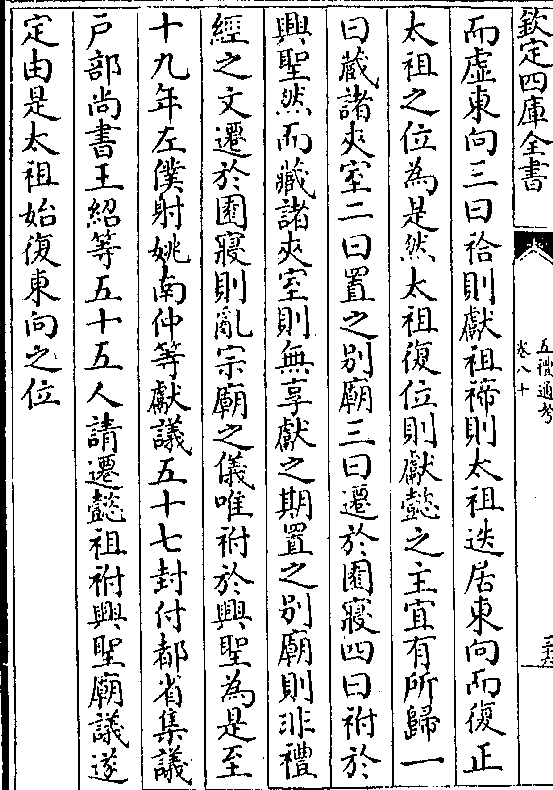 欽定四庫全書
五禮通考
卷八十
而虛東向三曰祫則獻祖禘則太祖迭居東向而復正
太祖之位為是然太祖復位則獻懿之主宜有所歸一
曰藏諸夾室二曰置之别廟三曰遷於園寢四曰祔於
興聖然而藏諸夾室則無享獻之期置之别廟則非禮
經之文遷於園寢則亂宗廟之儀唯祔於興聖為是至
十九年左僕射姚南仲等獻議五十七封付都省集議
戸部尚書王紹等五十五人請遷懿祖祔興聖廟議遂
定由是太祖始復東向之位